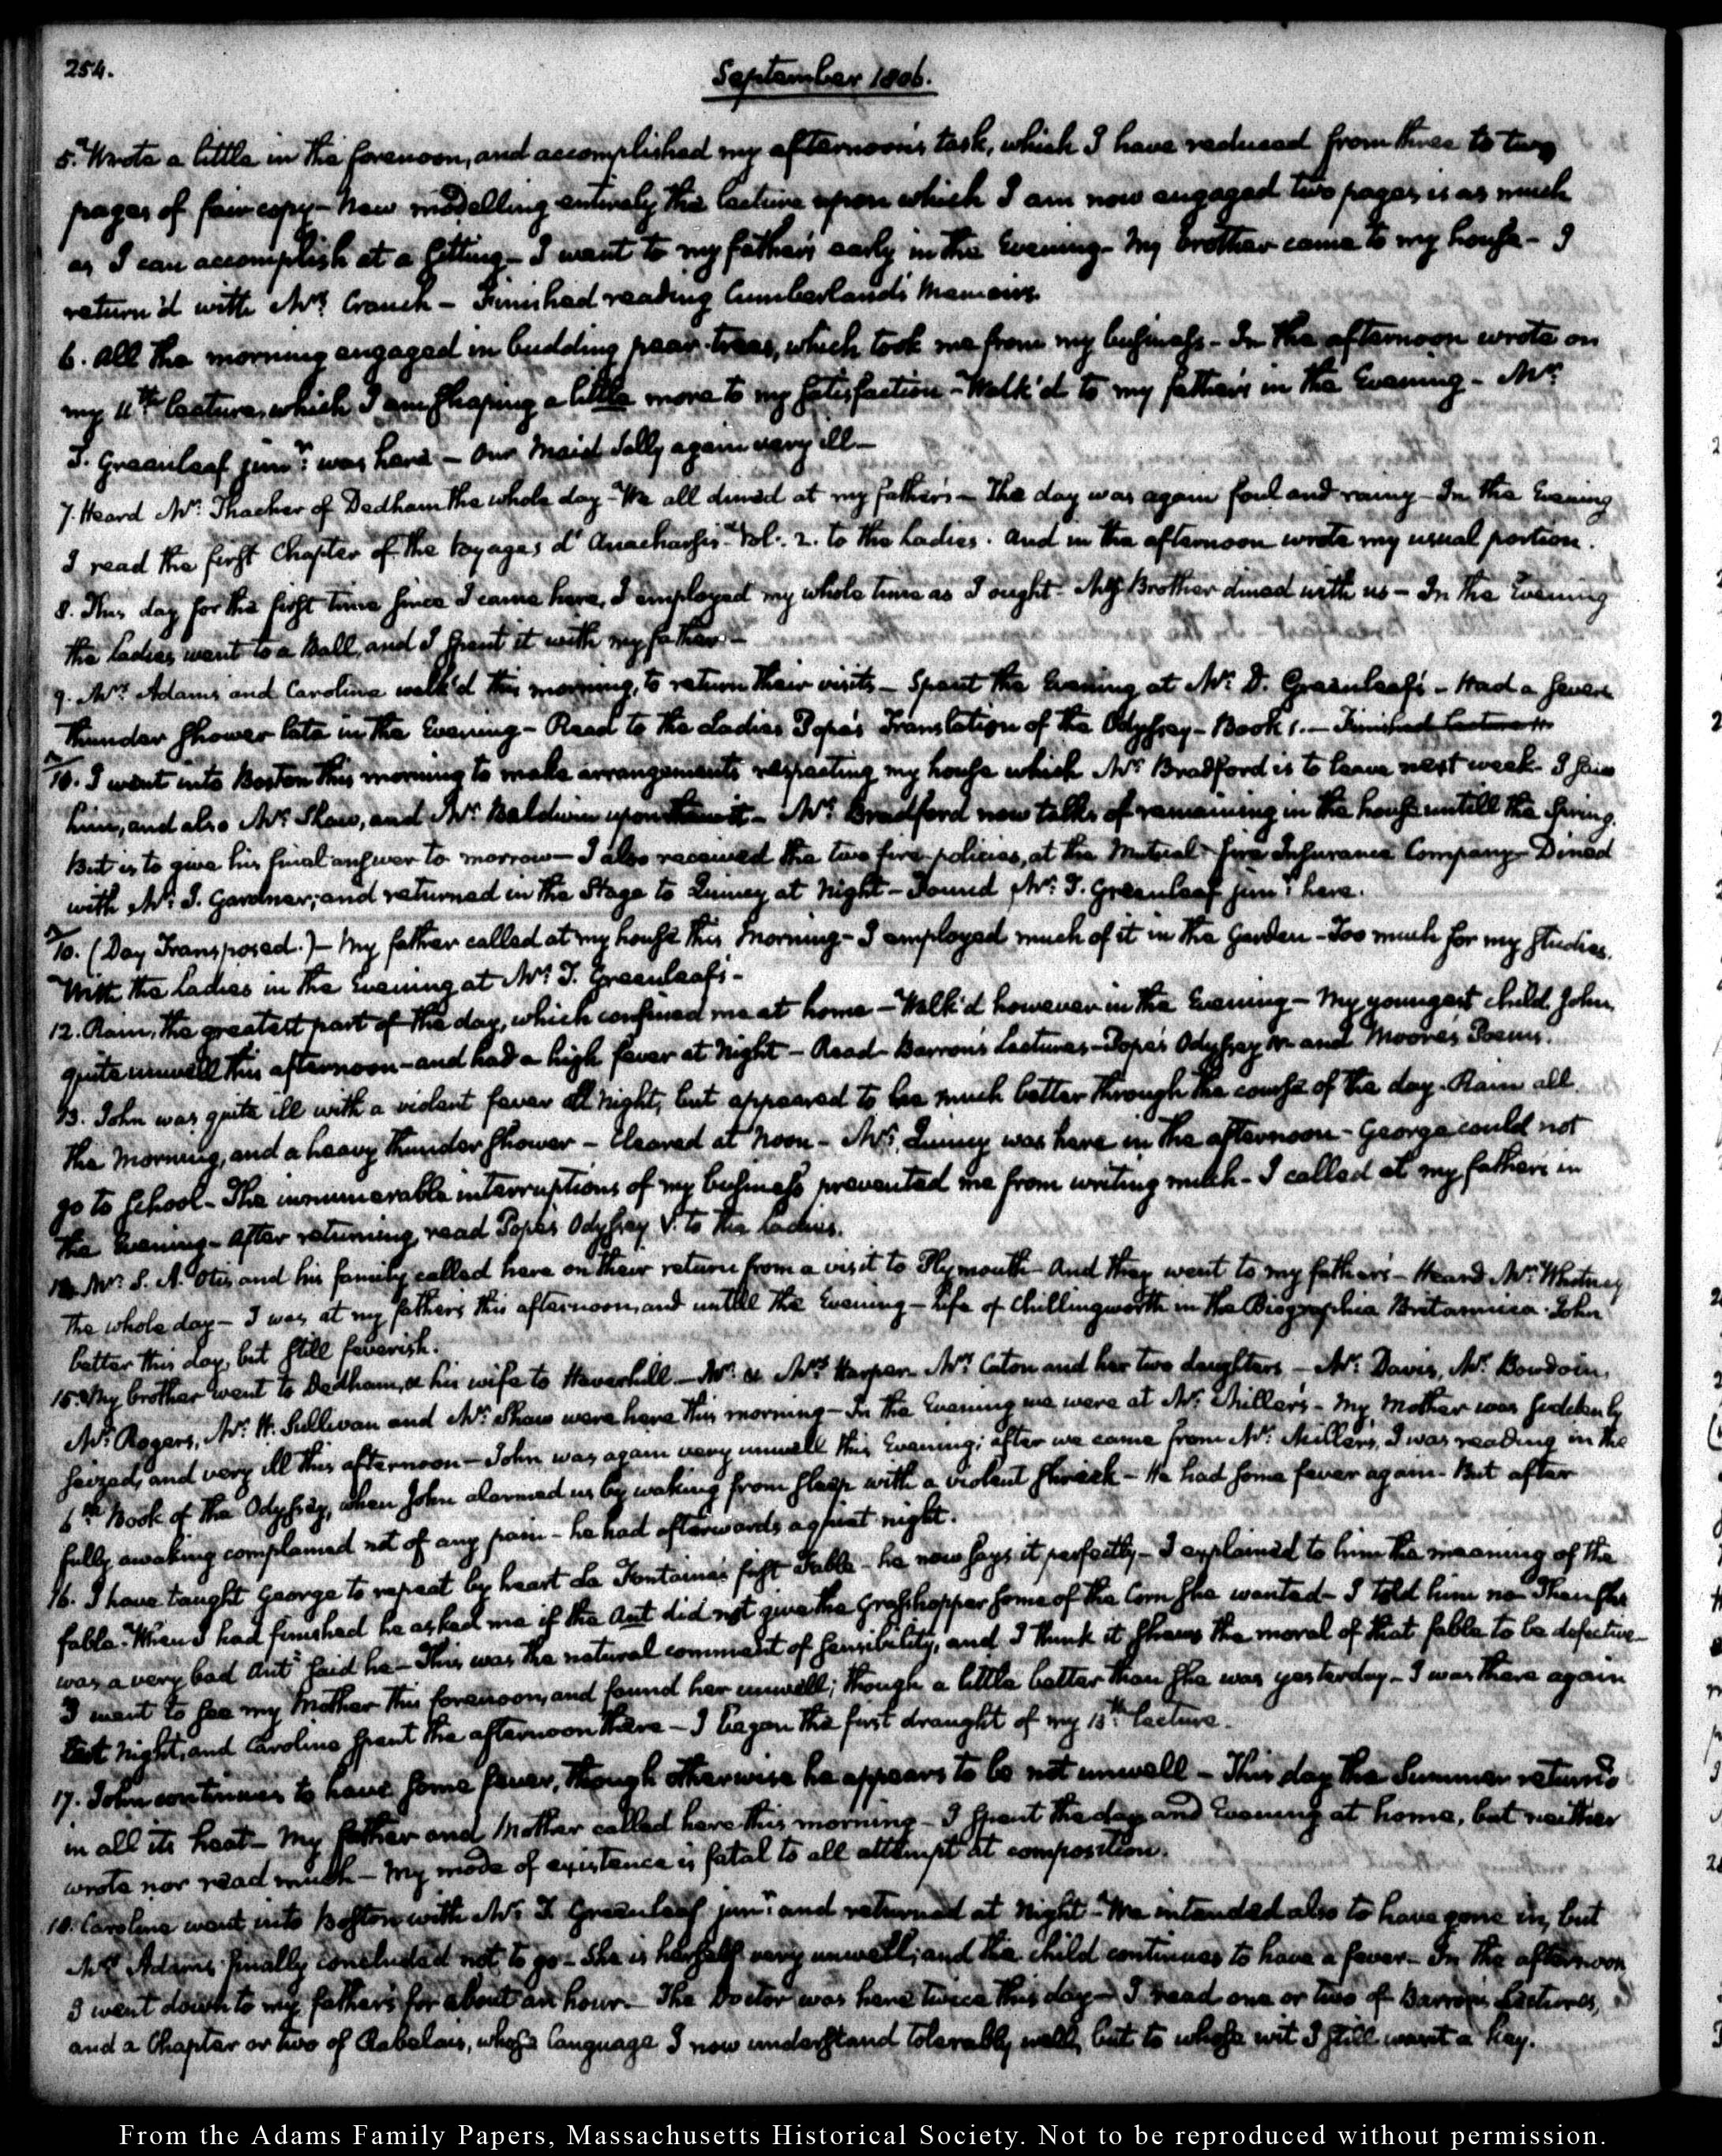 254.
September 1806.
5. Wrote a little in the forenoon, and accomplished my afternoon's task, which I have reduced from three to two
pages of fair copy – New modelling entirely the lecture upon which I am now engaged two pages is as much
as I can accomplish at a sitting – I went to my father's early in the Evening – My brother came to my house – I
return'd with Mrs. Cranch – Finished reading Cumberland's Memoirs.
6. All the morning engaged in budding pear-trees, which took me from my business – In the afternoon wrote on
my 11th. lecture, which I am shaping a little more to my satisfaction – Walk'd to my father's in the Evening – Mr.
T. Greenleaf junr. was here – Our Maid Sally again very ill –
7. Heard Mr. Thacher of Dedham the whole day – We all dined at my father's – The day was again foul and rainy – In the Evening
I read the first Chapter of the Voyages d'Anacharsis – Vol. 2. to the Ladies. And in the afternoon wrote my usual portion.
8. This day for the first time since I came here, I employed my whole time as I ought – My Brother dined with us – In the Evening
the Ladies went to a Ball, and I spent it with my father –
9. Mrs. Adams and Caroline walk'd this morning, to return their visits – Spent the Evening at Mr. D. Greenleaf's – Had a severe
thunder shower late in the Evening – Read to the Ladies Pope's Translation of the Odyssey – Book 1. – Finished Lecture
10. I went into Boston this morning to make arrangements respecting my house which Mr. Bradford is to leave next week. I saw
him, and also Mr. Shaw, and Mr. Baldwin upon – Mr. Bradford now talks of remaining in the house untill the Spring.
But is to give his final answer to morrow – I also received the two fire-policies, at the Mutual Fire Insurance Company – Dined
with Mr. S. Gardner; and returned in the Stage to Quincy at Night – Found Mr. T. Greenleaf junr. here.
10. (Day Transposed.) – My father called at my house this Morning – I employed much of it in the Garden – Too much for my studies.
With the Ladies in the Evening at Mr. T. Greenleaf's –
12. Rain, the greatest part of the day, which confined me at home – Walk'd however in the Evening – My youngest child, John,
quite unwell this afternoon – and had a high fever at Night – Read Barron's Lectures – Pope's Odyssey and Moore's Poems.
13. John was quite ill with a violent fever all Night, but appeared to be much better through the course of the day. Rain all
the Morning, and a heavy thunder shower – Cleared at Noon – Mrs. Quincy was here in the afternoon – George could not
go to School – The innumerable interruptions of my business prevented me from writing much – I called at my father's in
the Evening – After returning, read Pope's Odyssey V. to the Ladies.
14. Mr. S. A. Otis and his family called here on their return from a visit to Plymouth – And they went to my father's – Heard Mr. Whitney
the whole day – I was at my father's this afternoon, and untill the Evening – Life of Chillingworth in the Biographia Britannica. John
better this day, but still feverish.
15. My brother went to Dedham, & his wife to Haverhill – Mr. & Mrs. Harper. Mrs. Caton and her two daughters – Mr. Davis, Mr. Bowdoin,
Mr. Rogers, Mr. W. Sullivan and Mr. Shaw were here this morning – In the Evening we were at Mr. Miller's – My Mother was suddenly
seized, and very ill this afternoon – John was again very unwell this Evening; after we came from Mr. Miller's, I was reading in the
6th. Book of the Odyssey, when John alarmed us by waking from sleep with a violent shriek – He had some fever again – But after
fully awaking complained not of any pain – he had afterwards a quiet night.
16. I have taught George to repeat by heart La Fontaine's first Fable – he now says it perfectly – I explained to him the meaning of the
fable. When I had finished he asked me if the Ant did not give the Grasshopper some of the Corn she wanted – I told him no – Then she
was a very bad Ant said he – This was the natural comment of sensibility, and I think it shews the moral of that fable to be defective –
I went to see my Mother this forenoon, and found her unwell; though a little better than she was yesterday – I was there again
last Night, and Caroline spent the afternoon there – I began the first draught of my 13th. lecture.
17. John continues to have some fever, though otherwise he appears to be not unwell – This day the Summer return'd
in all its heat – My father and Mother called here this morning – I spent the day and Evening at home, but neither
wrote nor read much – My mode of existence is fatal to all attempt at composition.
18. Caroline went into Boston with Mr. T. Greenleaf junr. and returned at Night – We intended also to have gone in, but
Mrs. Adams finally concluded not to go – She is herself very unwell; and the child continues to have a fever – In the afternoon
I went down to my father's for about an hour – The Doctor was here twice this day – I read one or two of Barron's Lectures,
and a Chapter or two of Rabelais, whose language I now understand tolerably well, but to whose wit I still want a key.
From the Adams Family Papers, Massachusetts Historical Society. Not to be reproduced without permission.